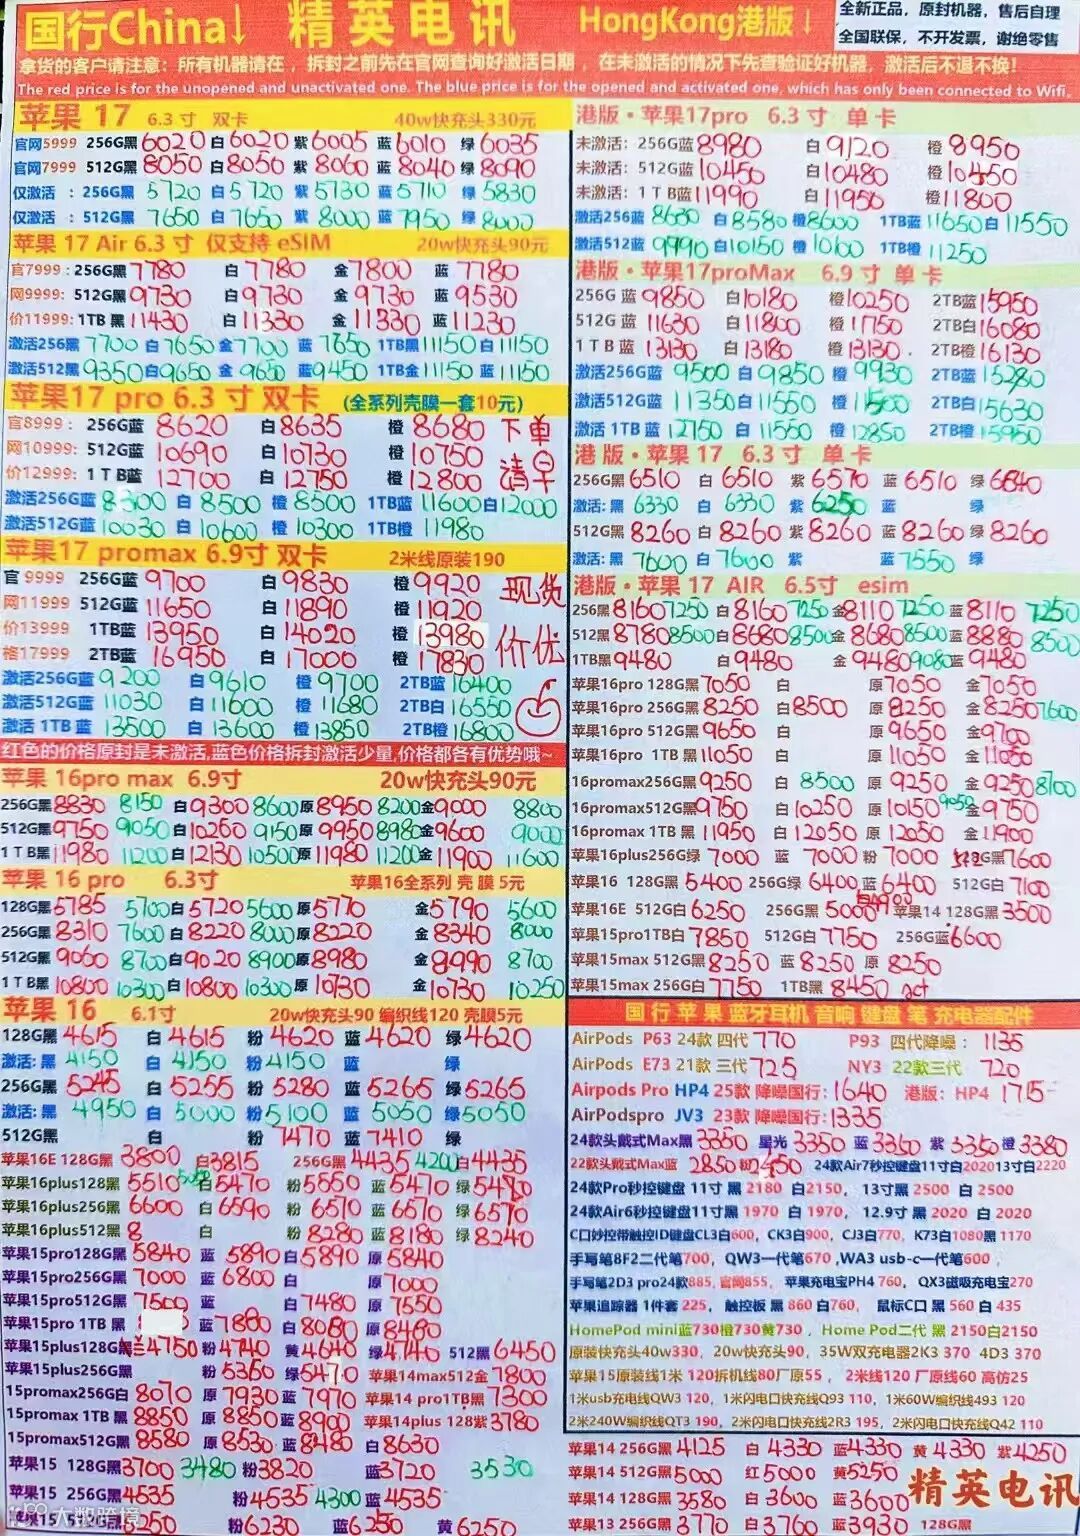 国行China↓ 精英电讯 HongKong港版↓
全新正品，原封机器，售后自理
全国联保，不开发票，谢绝零售
拿货的客户请注意：所有机器请在，拆封之前先在官网查询好激活日期，在未激活的情况下先查验证好机器，激活后不退不换！
The red price is for the unopened and unactivated one. The blue price is for the opened and activated one, which has only been connected to Wifi.
苹果 17 6.3寸 双卡 40w快充头330元
官网5999 256G黑6020 白6020 紫6005 蓝6010 绿6035
官网7999 512G黑8050 白8050 紫8060 蓝8040 绿8090
仅激活：256G黑 5720 白5720 紫5730 蓝5710 绿5830
仅激活：512G黑 7650 白7650 紫8000 蓝7950 绿8000
苹果 17 Air 6.3寸 仅支持 eSIM 20w快充头90元
官7999：256G黑7780 白7780 金7800 蓝7780
网9999：512G黑9730 白9730 金9730 蓝9530
价11999：1TB 黑11430 白11330 金11330 蓝11230
激活256黑7700 白7650 金7700 蓝7650 1TB黑11150 白11150
激活512黑9350 白9650 金9650 蓝9450 1TB金11150 蓝11150
苹果17 pro 6.3寸 双卡 (全系列壳膜一套10元)
官8999：256G蓝 8620 白8635 橙8680 下单
网10999：512G蓝10690 白10730 橙10750 请早
价12999：1TB蓝12700 白12750 橙12800
激活256G蓝8300 白8500 橙8500 1TB蓝11600白12000
激活512G蓝10030 白10600 橙10300 1TB橙11980
苹果17 promax 6.9寸 双卡 2米线原装190
官 9999 256G蓝9700 白9830 橙9920 现货
网11999 512G蓝11650 白11890 橙11920
价13999 1TB蓝13950 白14020 橙13980 价优
格17999 2TB蓝16950 白17000 橙17830
激活256G蓝9200 白9610 橙9700 2TB蓝16400
激活512G蓝11030 白11600 橙11680 2TB白16550
激活 1TB 蓝13500 白13600 橙13850 2TB橙16800
红色的价格原封是未激活,蓝色价格拆封激活少量,价格都各有优势哦~
苹果 16pro max 6.9寸 20w快充头90元
256G黑8830 8150 白9300 8600原8950 8200金9000 8800
512G黑9750 9050 白10250 9150原9950 8980金9600 9000
1TB黑11980 11200白12130 10500原11980 11200金11900 11600
苹果 16 pro 6.3寸 苹果16全系列 壳 膜 5元
128G黑5785 5700白5720 5600原5770 金5790 5600
256G黑8310 7600白8220 8000原8220 金8340 8000
512G黑9060 8700白9020 8900原8980 金8990 8700
1TB黑10800 10300白10800 10300原10730 金10730 10250
苹果 16 6.1寸 20w快充头90 编织线120 壳膜5元
128G黑4615 白4615 粉4620 蓝4620 绿4620
激活：黑4150 白4150 粉4150 蓝 绿
256G黑5245 白5255 粉5280 蓝5265 绿5265
激活：黑 4950 白5000 粉5100 蓝5050 绿5050
512G黑 白 粉7470 蓝7410 绿
苹果16E 128G黑3800 白3815 256G黑4435 4200白4435
苹果16plus128黑5510 5050白5470 粉5550 蓝5470 绿5490
苹果16plus256黑6600 白6590 粉6510 蓝6510 绿6570
苹果16plus512黑8 白 粉8280 蓝8180 绿8240
苹果15pro128G黑5840 蓝5890白5890 原5840
苹果15pro256G黑7000 蓝6800白 原7000
苹果15pro512G黑7500 蓝 白7480 原7550
苹果15pro 1TB 黑 蓝7880 白8080 原8480
苹果15plus128G黑4750 粉4740 黄4640 绿4740 512黑6450
苹果15plus256G黑 粉5350 绿5470 苹果14max512金7800
15promax256G白 8070 原7930蓝7970 苹果14 pro1TB黑7300
15promax 1TB 黑8850 原8850蓝8900 苹果14plus 128紫3780
15promax512G黑8580 原8530蓝8480 白8630
苹果15 128G黑3700 3480 粉3820 蓝3720 3530
苹果15 256G黑4535 粉4535 4300 蓝4535
苹果15 512G黑6250 粉6230 蓝6250 黄6250
大数跨境
港版·苹果17pro 6.3寸 单卡
未激活：256G蓝8980 白9120 橙8950
未激活：512G蓝10450 白10480 橙10450
未激活：1TB蓝11990 白11950 橙11800
激活256蓝8630 白8580橙8600 1TB蓝11650白11550
激活512蓝9990 白10150 橙10100 1TB橙11250
港版·苹果17proMax 6.9寸 单卡
256G 蓝9850 白10180 橙10250 2TB蓝15950
512G 蓝11630 白11800 橙11750 2TB白16080
1TB 蓝13130 白13180 橙13130 2TB橙16130
激活256G蓝9500 白9850 橙9930 2TB蓝15280
激活512G蓝11350 白11550 橙11500 2TB白15630
激活 1TB 蓝12750 白11550 橙12850 2TB橙15950
港版·苹果17 6.3寸 单卡
256G黑6510 白6510 紫6570 蓝6510 绿6840
激活：黑6330 白6330 紫6250 蓝 绿
512G黑8260 白8260 紫8260 蓝8260 绿8260
激活：黑 7600 白7600 紫 蓝7550 绿
港版·苹果 17 AIR 6.5寸 esim
256黑8160 7250 白8160 7250 金8110 7250 蓝8110 7250
512黑8780 8500白8680 8500金8680 8500蓝8880 8500
1TB黑9480 白9480 金9480 9080蓝9480
苹果16pro 128G黑7050 白 原7050 金7050
苹果16pro 256G黑8250 白8500 原8250 金8250 7600
苹果16pro 512G黑9650 白 原9650 金9700
苹果16pro 1TB黑11050 白 原11050 金11050
16promax256G黑9250 白 8500 原9250 金9250 8700
16promax512G黑9750 白10250 原10150 9050金9750
16promax 1TB 黑11950 白12050 原12050 金11900
苹果16plus256G绿 7000 蓝7000 粉7000 512G黑7600
苹果16 128G黑5400 256G绿6400蓝6400 512G白7100
苹果16E 512G白6250 256G黑5000白4900 苹果14 128G黑3500
苹果15pro1TB白7850 512G白7750 256G蓝6600
苹果15max 512G黑8250 蓝8250 原8250
苹果15max 256G白7750 1TB黑8450 act
国行苹果蓝牙耳机 音响 键盘 笔 充电器配件
AirPods P63 24款 四代 770 P93 四代降噪：1135
AirPods E73 21款 三代 725 NY3 22款三代 720
Airpods Pro HP4 25款 降噪国行：1640 港版：HP4 1715
AirPodspro JV3 23款 降噪国行：1335
24款头戴式Max黑 3350 星光3350 蓝3350 紫3350橙3380
22款头戴式Max蓝 2850粉2450 24款Air7秒控键盘11寸白2020 13寸白2220
24款Pro秒控键盘 11寸 黑 2180 白2150，13寸黑 2500 白 2500
24款Air6秒控键盘11寸黑 1970 白 1970，12.9寸 黑 2020 白 2020
C口妙控带触控ID键盘CL3白600，CK3白900，CJ3白770，K73白1080黑 1170
手写笔8F2二代笔700，QW3一代笔670 ,WA3 usb-c一代笔600
手写笔2D3 pro24款885，官网855，苹果充电宝PH4 760，QX3磁吸充电宝270
苹果追踪器 1件套 225，触控板 黑 860 白760，鼠标C口 黑 560 白 435
HomePod mini蓝730橙730黄730，Home Pod二代 黑 2150白2150
原装快充头40w330，20w快充头90，35W双充电器2K3 370 4D3 370
苹果15原装线1米 120拆机线80厂原55，2米线120 厂原线60 高仿25
1米usb充电线QW3 120，1米闪电口快充线Q93 110，1米60W编织线493 120
2米240W编织线QT3 190，2米闪电口快充线2R3 195，2米闪电口快充线Q42 110
苹果14 256G黑4125 白4330 蓝4330 黄4330 紫4250
苹果14 512G黑5000 红5000 黄5250
苹果14 128G黑3580 白3600 蓝3600
苹果13 256G黑3770 白3760 蓝3930 128G黑
精英电讯